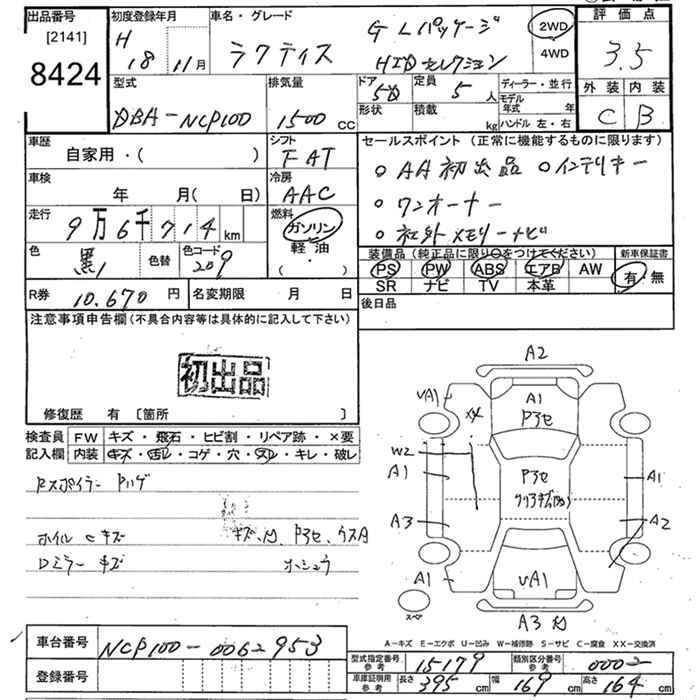 出品番号 初度登録年月 車名・グレード 評価点
[2141]
8424
H 18 11月
ラクティス
GLパッケージ
HIDセレクション
2WD
4WD
3.5
外装 内装
C B
型式 排気量 ドア 定員 ディーラー・並行
DBA-NCP100 1500cc 5D 5人
モデル年式 年
形状 積載 kg ハンドル 左・右
車歴
自家用・( )
シフト
FAT
車検
年 月( 日)
冷房
AAC
走行
9万6千714km
燃料
ガソリン
軽油・
( )
色 黒 色替 色コード 209
セールスポイント(正常に機能するものに限ります)
○AA初出品 ○インテリキー
○ワンオーナー
○社外メモリーナビ
装備品(純正品に限り○をつけてください) 新車保証書
PS PW ABS エアB AW 有・無
SR ナビ TV 本革
後日品
R券 10.670円 名変期限 月 日
注意事項申告欄(不具合内容等は具体的に記入して下さい)
初出品
修復歴 有 [箇所 ]
検査員 FW キズ・飛石・ヒビ割・リペア跡・×要
記入欄 内装 キズ・汚レ・コゲ・穴・スレ・キレ・破レ
Rスポイラー Pハゲ
ホイルCキズ
Dミラーキズ
A2
UA1 A1
XX Pアセ
W2
A1 Pアセ A1
A3 A2
A1 UA1
スペア
A3
A-キズ E-エクボ U-凹み W-補修跡 S-サビ C-腐食 XX-交換済
車台番号 NCP100-0062953
登録番号
型式指定番号 参考 15179 類別区分番号 参考 0002
車庫証明用 参考 長さ 395cm 幅 169cm 高さ 164cm